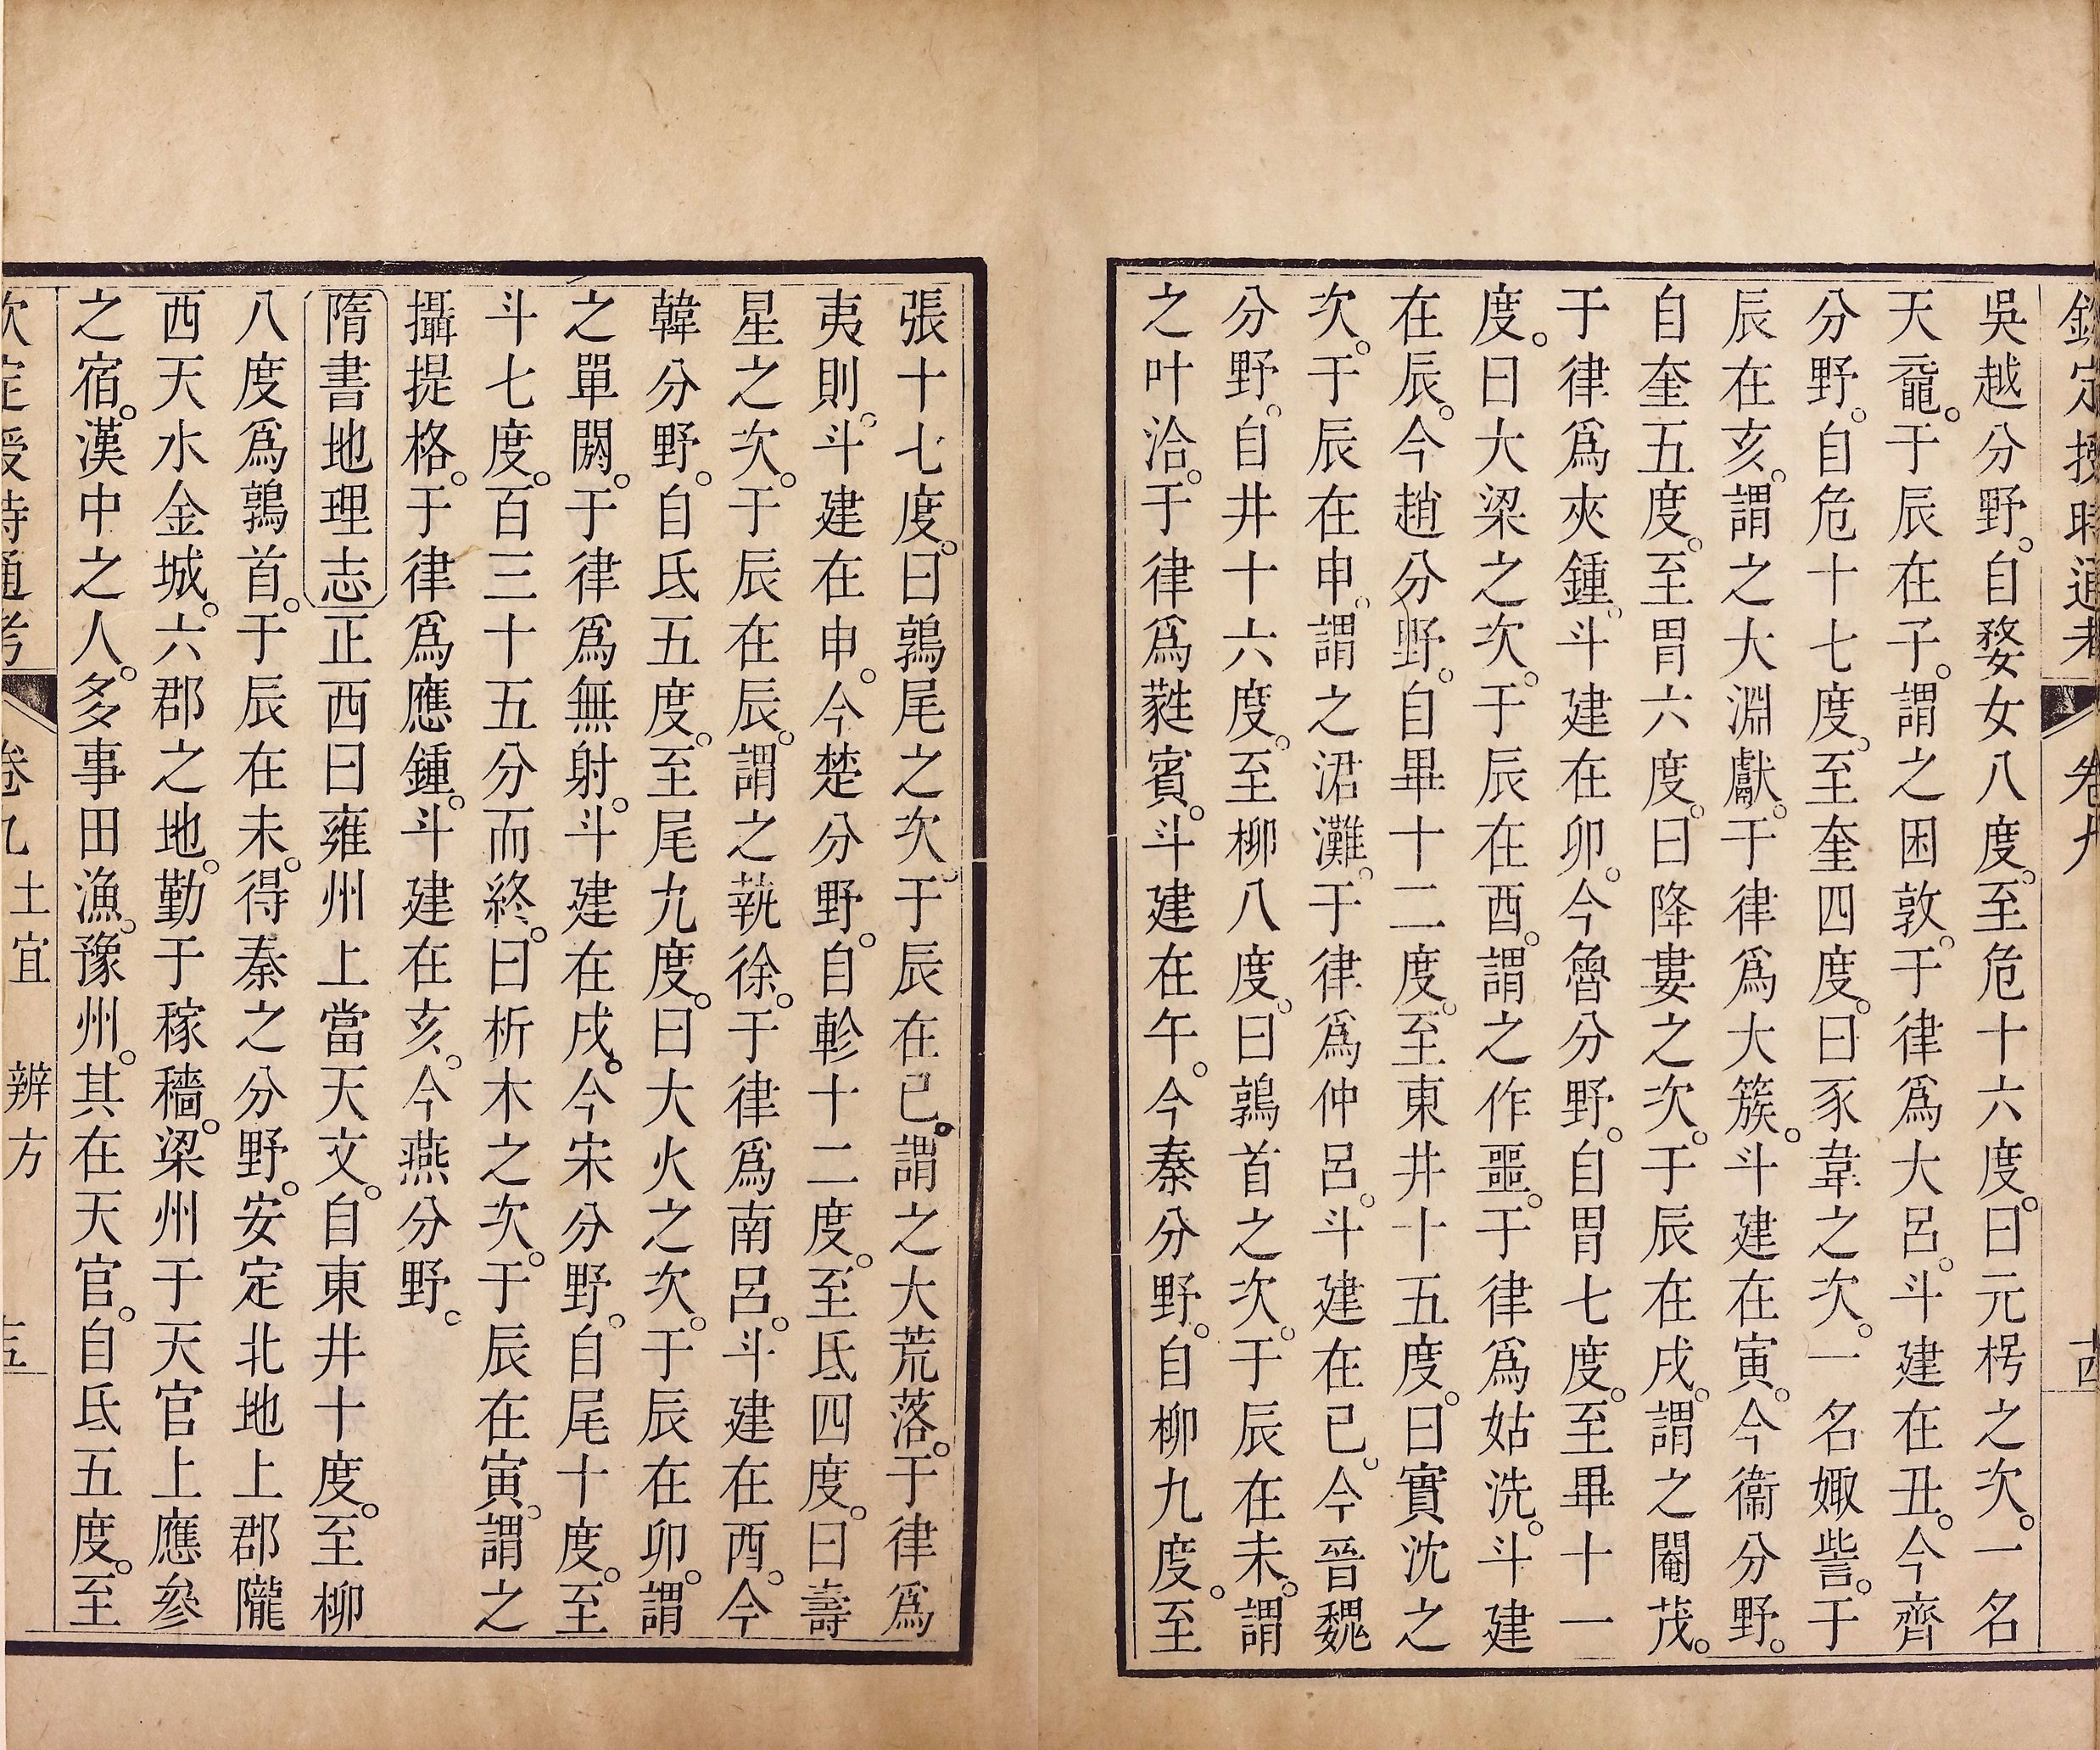 欽定授時通考 卷九 古
吳越分野。自婺女八度。至危十六度。曰元枵之次。一名
天黿。于辰在子。謂之困敦。于律爲大呂。斗建在丑。今齊
分野。自危十七度。至奎四度。曰豕韋之次。一名娵訾。于
辰在亥。謂之大淵獻。于律爲大簇。斗建在寅。今衞分野。
自奎五度。至胃六度。曰降婁之次。于辰在戌。謂之閹茂。
于律爲夾鍾。斗建在卯。今魯分野。自胃七度。至畢十一
度。曰大梁之次。于辰在酉。謂之作噩。于律爲姑洗。斗建
在辰。今趙分野。自畢十二度。至東井十五度。曰實沈之
次。于辰在申。謂之涒灘。于律爲仲呂。斗建在巳。今晉魏
分野。自井十六度。至柳八度。曰鶉首之次。于辰在未。謂
之叶洽。于律爲蕤賓。斗建在午。今秦分野。自柳九度。至
張十七度。曰鶉尾之次。于辰在巳。謂之大荒落。于律爲
夷則。斗建在申。今楚分野。自軫十二度。至氐四度。曰壽
星之次。于辰在辰。謂之執徐。于律爲南呂。斗建在酉。今
韓分野。自氐五度。至尾九度。曰大火之次。于辰在卯。謂
之單閼。于律爲無射。斗建在戌。今宋分野。自尾十度。至
斗七度。百三十五分而終。曰析木之次。于辰在寅。謂之
攝提格。于律爲應鍾。斗建在亥。今燕分野。
隋書地理志正西曰雍州上當天文。自東井十度。至柳
八度爲鶉首。于辰在未。得秦之分野。安定北地上郡隴
西天水金城。六郡之地。勤于稼穡。梁州于天官上應參
之宿。漢中之人。多事田漁。豫州。其在天官。自氐五度。至
欽定授時通考 卷九 土宜 辨方 五